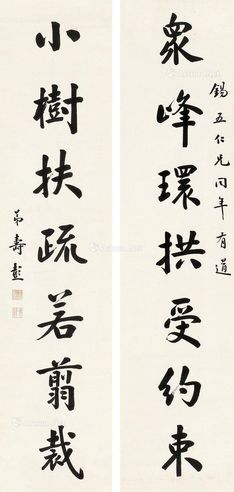 錫五仁兄同年有道
眾峰環拱受約束
小樹扶疏若翦裁
弟壽彭